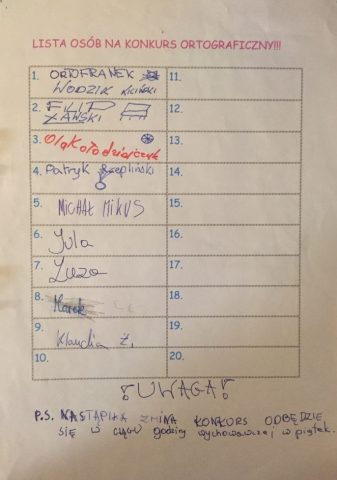 LISTA OSÓB NA KONKURS ORTOGRAFICZNY!!!
1. ORTOFRANEK
WODZIK KICIŃSKI
2. FILIP
ŻAŃSKI
3. Ola Kołodziejczyk
4. Patryk Rzepliński
5. MICHAŁ MIKUS
6. Jula
7. Zuza
8. Karek
9. Klaudia Ż.
10.
11.
12.
13.
14.
15.
16.
17.
18.
19.
20.
! UWAGA !
P.S. NASTĄPIŁA ZMINA KONKURS ODBĘDZIE
SIĘ W CIĄGU godziny wychowawczej w piątek.